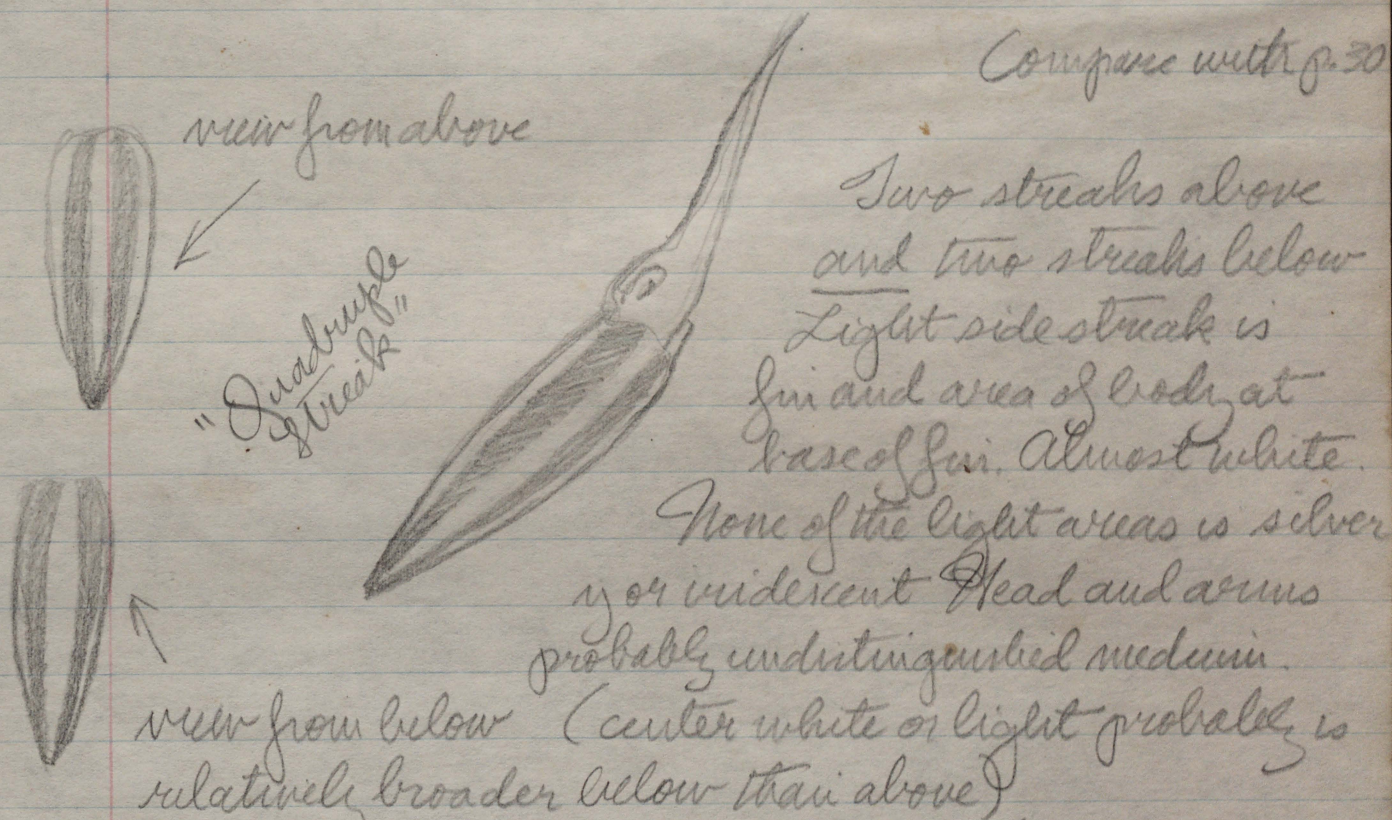 Compare with p. 30
view from above
Two streaks above
and two streaks below
"Quadruple
Streak"
Light side streak is
fin and area of body at
base of fin. Almost white.
None of the light areas is silver
y or iridescent Head and arms
probably undistinguished medium.
view from below (center white or light probably is
relatively broader below than above)